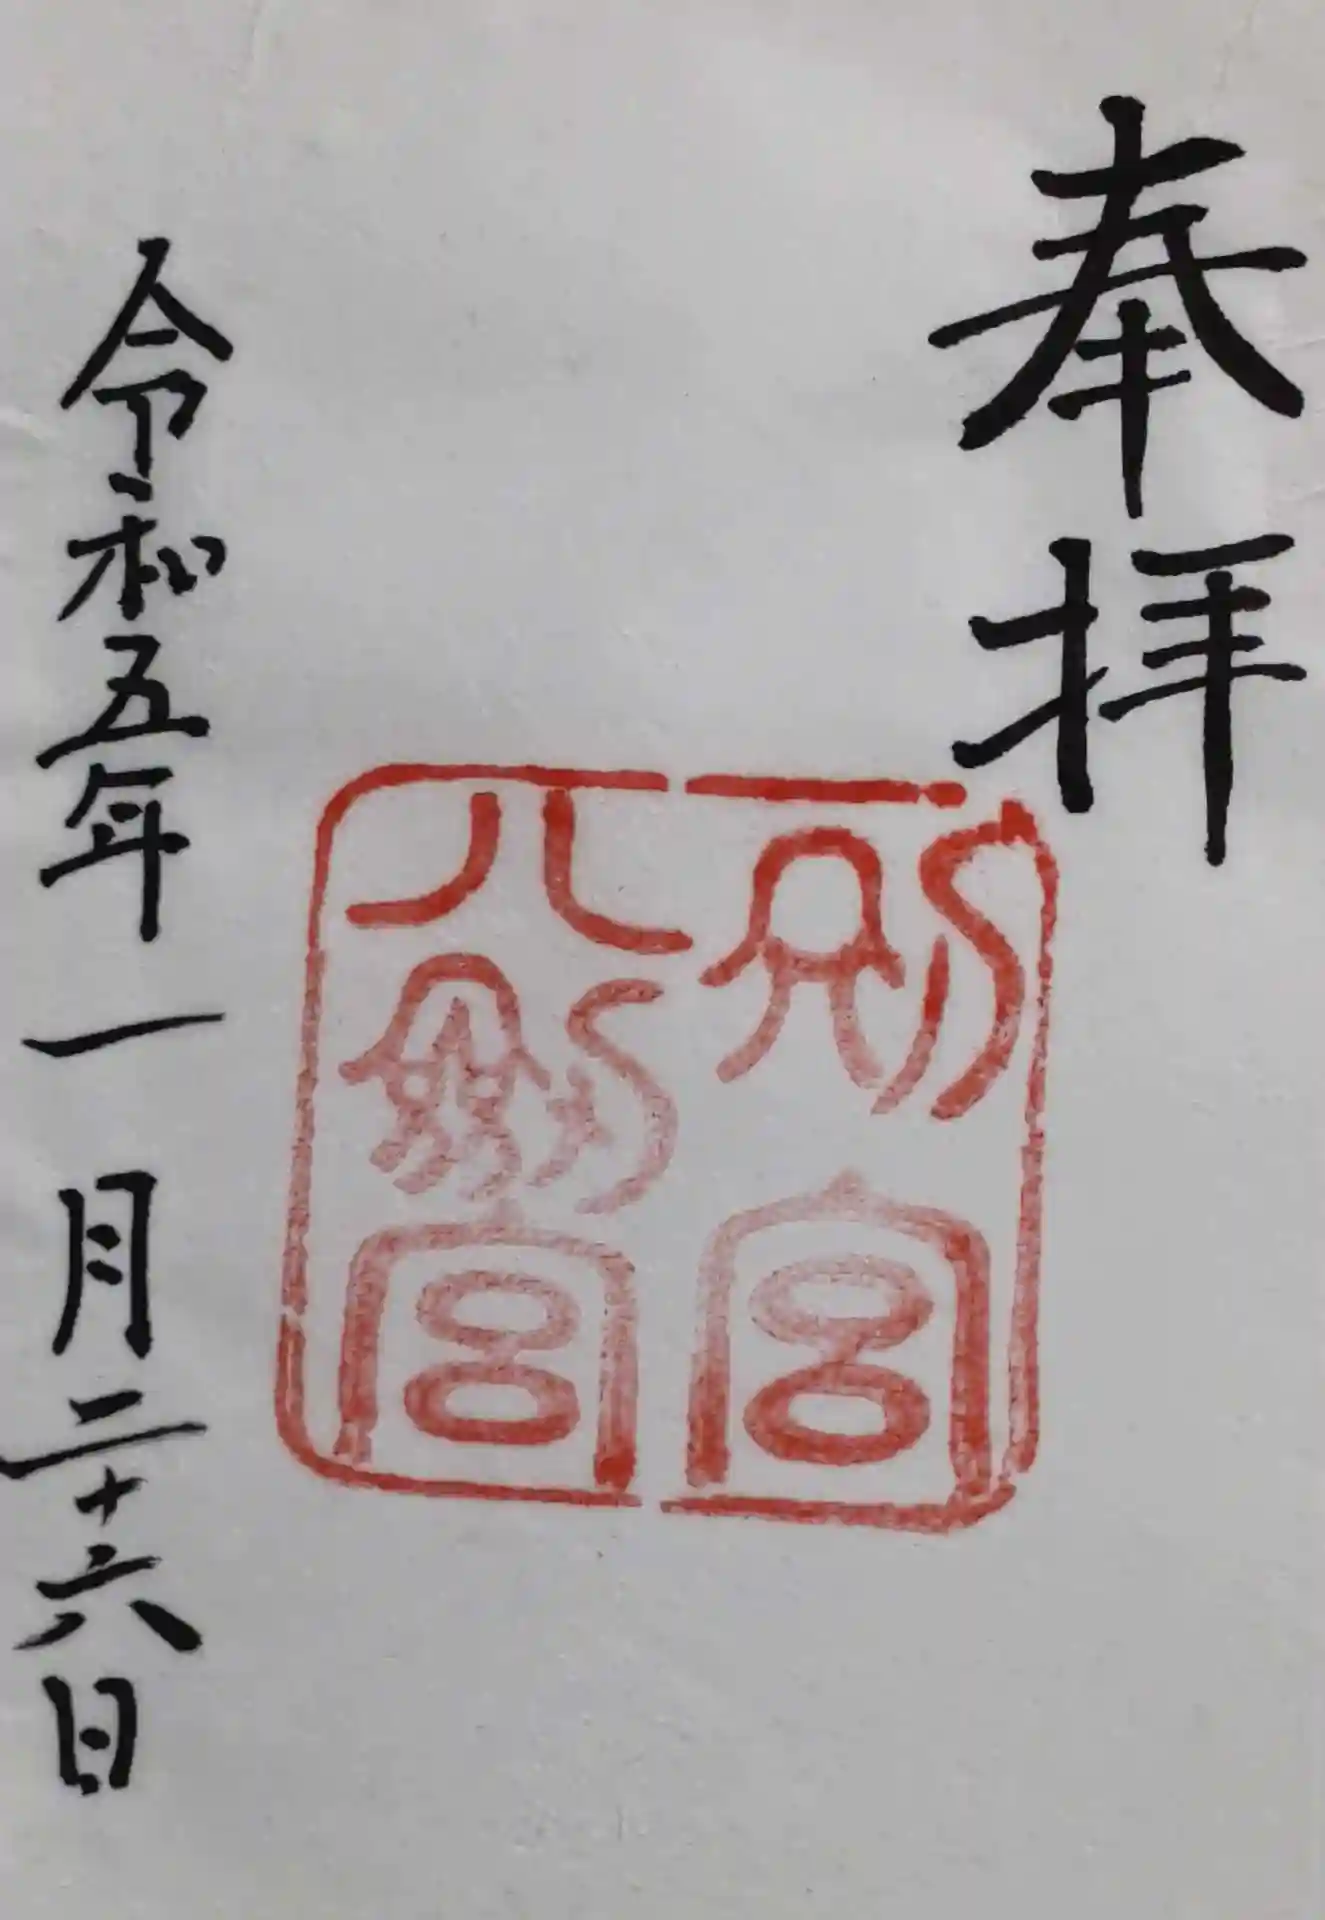 奉拝
別宮
八剣宮
令和五年一月二十六日